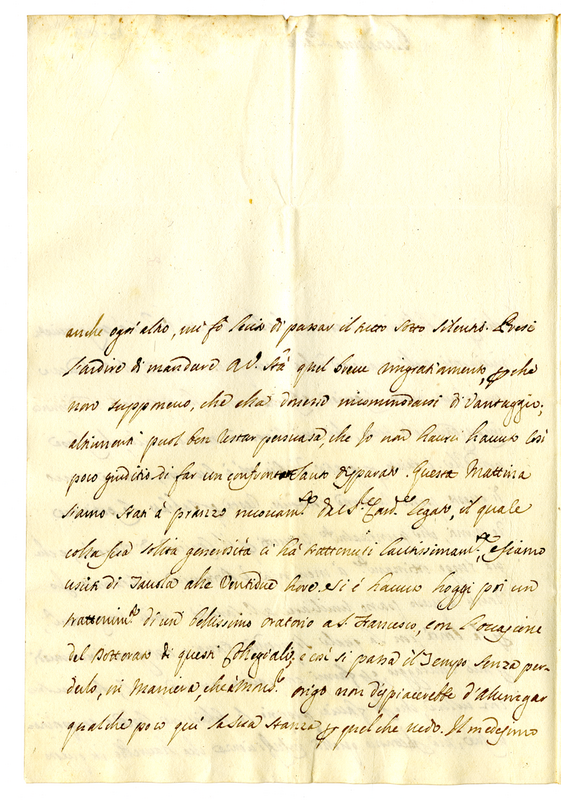 anche ogni altro, mi fò lecito di passar il tutto sotto silentio. Presi
l'ardire di mandare a V. Stà quel breve ringratiamento, che
non supponevo, che ella dovesse ricomodarsi di vantaggio,
altrimenti puol ben restar persuasa, che Io non haurei havuto così
poco giuditio di far un confronto tanto disparato. Questa Mattina
siamo stati à pranzo nuovam.te dal S.r Card.le Legato, il quale
colla sua solita generosità ci hà trattenuti lautissimam.te, e siamo
usciti di Tavola alle Ventidue hore. Si è havuto hoggi poi un
trattenim.to di un bellissimo oratorio a S. Francesco, con l'occasione
del Dottorato di questi Collegiali, e così si passa il Tempo senza per-
derlo, in maniera, che à Mons.r Origo non dispiacerebbe d'allungar
qualche poco quì la sua stanza quel che vedo. Il medesimo